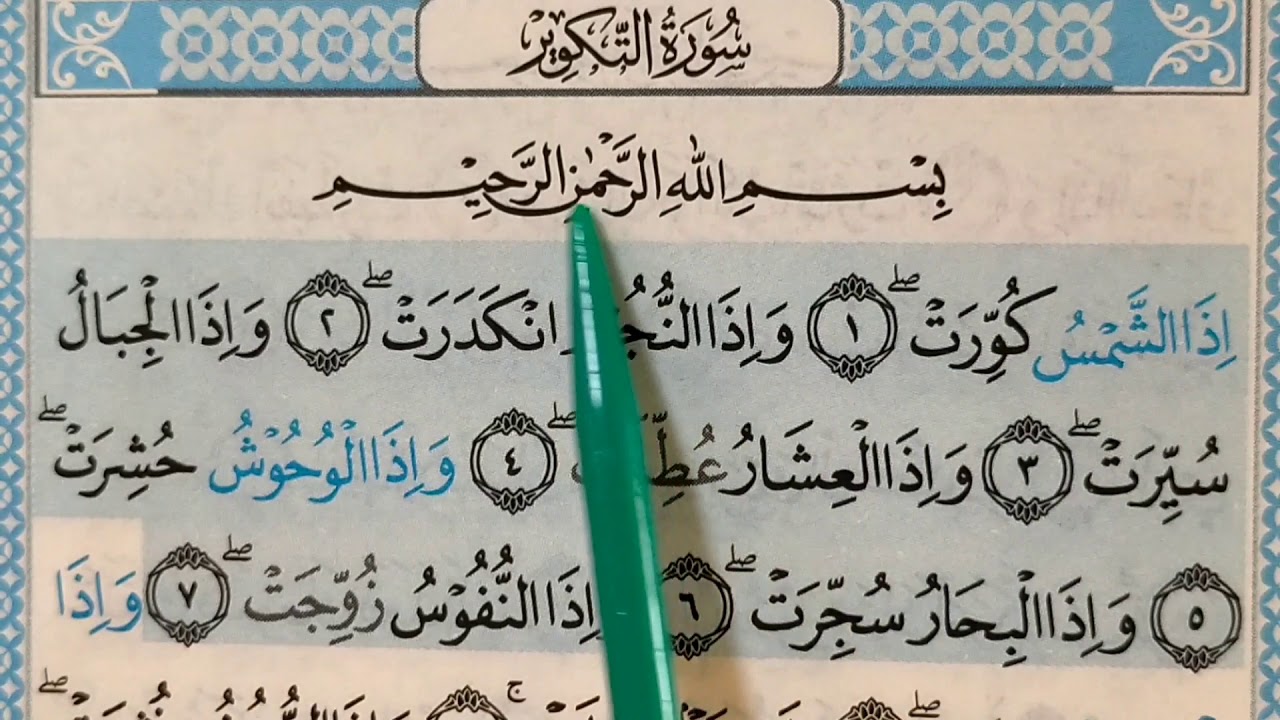 سُورَةُ التَّكْوِيْرِ
بِسْمِ اللّٰهِ الرَّحْمٰنِ الرَّحِيْمِ
اِذَا الشَّمْسُ كُوِّرَتْۖ ١ وَاِذَا انْكَدَرَتْۖ ٢ وَاِذَا الْجِبَالُ
سُيِّرَتْۖ ٣ وَاِذَا الْعِشَارُ ۖ ٤ وَاِذَا الْوُحُوْشُ حُشِرَتْۖ
٥ وَاِذَا الْبِحَارُ سُجِّرَتْۖ ٦ اِذَا النُّفُوْسُ زُوِّجَتْۖ ٧ وَاِذَا